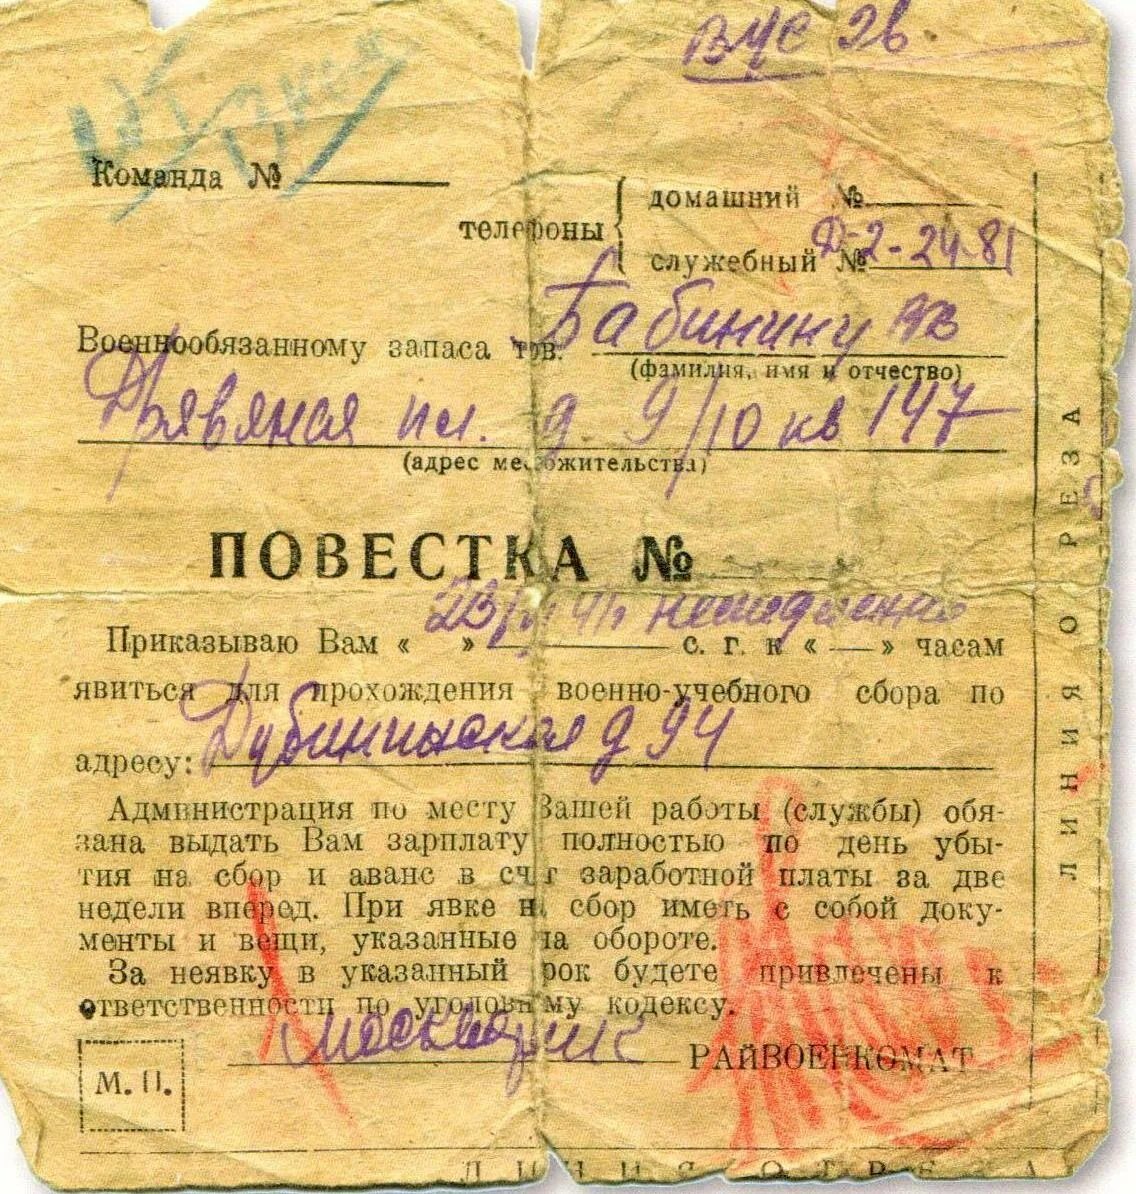 ВУС 26.
Команда №
домашний №
телефоны
служебный № Д-2-24-81
Военнообязанному запаса тов. Бабинину
(фамилия, имя и отчество)
пл. д 9/10 кв 147
(адрес местожительства)
ПОВЕСТКА №
23/VI 41 г
Приказываю Вам « » с. г. к « — » часам
явиться для прохождения военно-учебного сбора по
адресу: Дубининская д 94
Администрация по месту Вашей работы (службы) обя-
зана выдать Вам зарплату полностью по день убы-
тия на сбор и аванс в счет заработной платы за две
недели вперед. При явке на сбор иметь с собой доку-
менты и вещи, указанные на обороте.
За неявку в указанный срок будете привлечены к
ответственности по уголовному кодексу.
Москворецкий РАЙВОЕНКОМАТ
М. П.
ЛИНИЯ ОТРЕЗА
ЛИНИЯ ОТРЕЗА